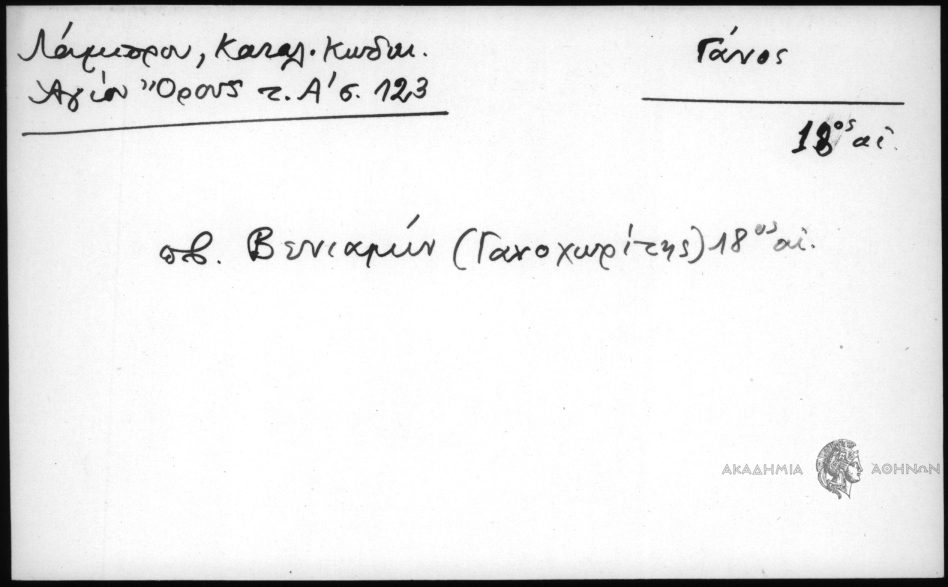 Λάμπρου, Καταλ. Κωδικ.
Αγίου Όρους τ. Α' σ. 123
Γάνος
18ος αί.
πβ. Βενιαμίν (Γανοχωρίτης) 18ος αί.
ΑΚΑΔΗΜΙΑ ΑΘΗΝΩΝ